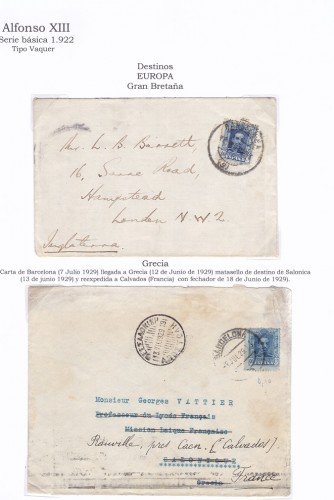 Alfonso XIII
Serie básica 1.922
Tipo Vaquer
Destinos
EUROPA
Gran Bretaña
Mr. L. B. Barrett,
16, Road,
Hampstead
London N W 2.
Inglaterra
Grecia
Carta de Barcelona (7 Julio 1929) llegada a Grecia (12 de Junio de 1929) matasello de destino de Salonica
(13 de junio 1929) y reexpedida a Calvados (Francia) con fechador de 18 de Junio de 1929).
BARCELONA
Monsieur Georges VATTIER
Professeur au Lycée Français
Mission Laique Française
près Caen. (Calvados)
SALONIQUE
Grecia
France